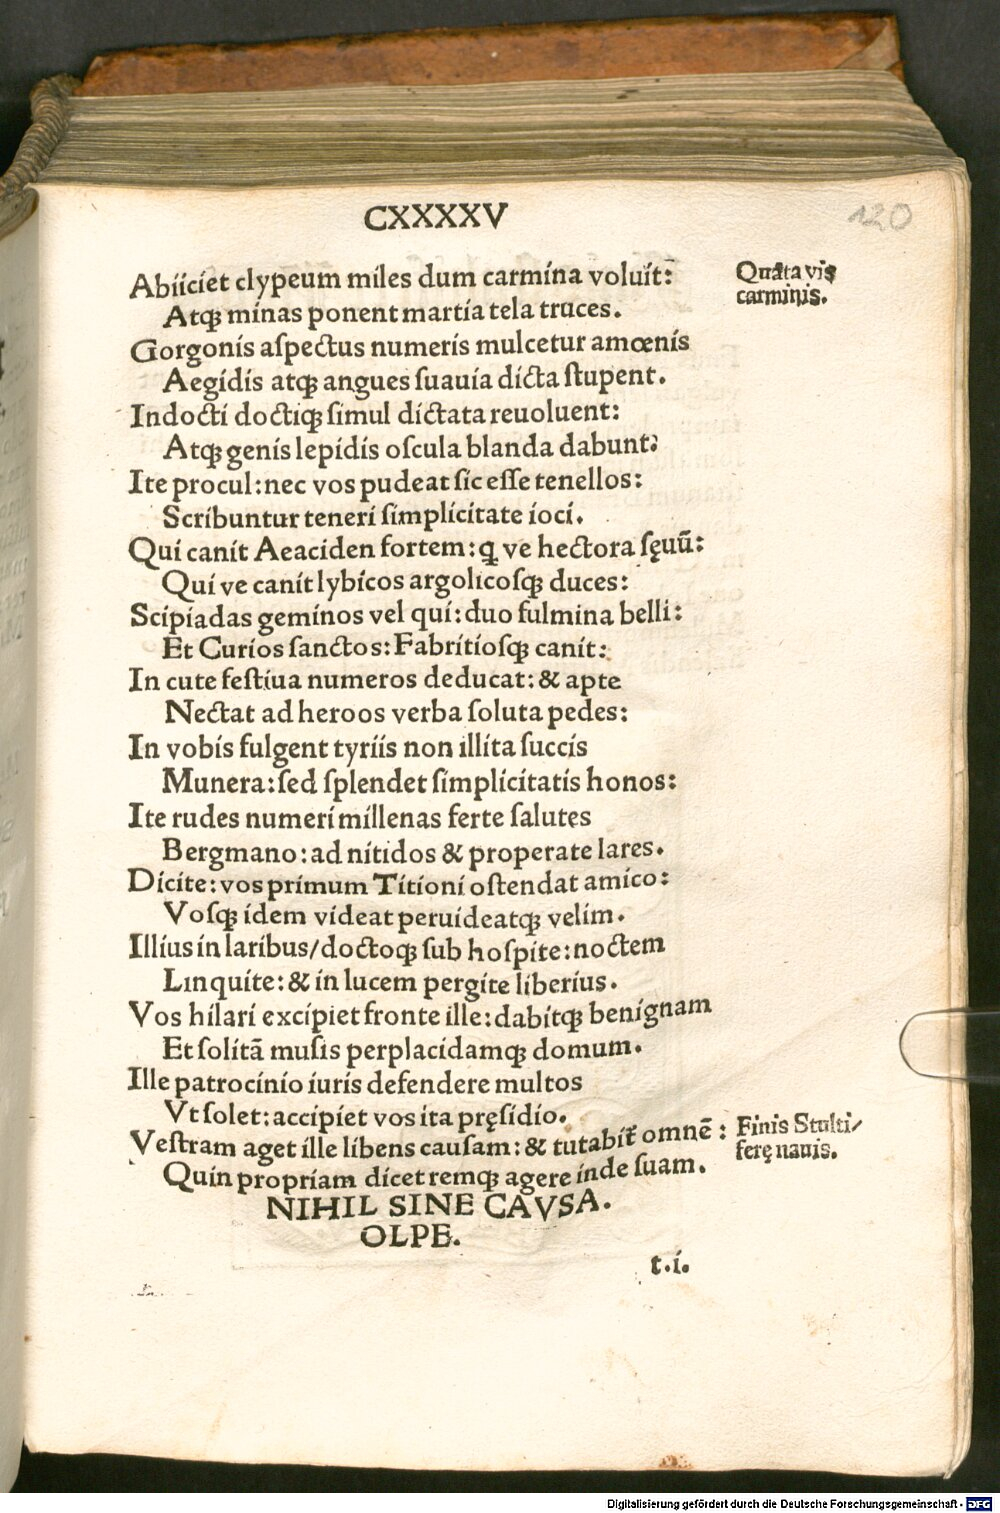 CXXXXV
120
Abiiciet clypeum miles dum carmina voluit:
Quãta vis
carminis.
Atqꝫ minas ponent martia tela truces.
Gorgonis aſpectus numeris mulcetur amœnis
Aegidis atqꝫ angues ſuauia dicta ſtupent.
Indocti doctiqꝫ ſimul dictata reuoluent:
Atqꝫ genis lepidis oſcula blanda dabunt:
Ite procul: nec vos pudeat ſic eſſe tenellos:
Scribuntur teneri ſimplicitate ioci.
Qui canit Aeaciden fortem: ꝗ ve hectora ſęuũ:
Qui ve canit lybicos argolicoſqꝫ duces:
Scipiadas geminos vel qui: duo fulmina belli:
Et Curios ſanctos: Fabritioſqꝫ canit:
In cute feſtiua numeros deducat: & apte
Nectat ad heroos verba ſoluta pedes:
In vobis fulgent tyriis non illita ſuccis
Munera: ſed ſplendet ſimplicitatis honos:
Ite rudes numeri millenas ferte ſalutes
Bergmano: ad nitidos & properate lares.
Dicite: vos primum Titioni oſtendat amico:
Voſqꝫ idem videat peruideatqꝫ velim.
Illius in laribus/doctoqꝫ ſub hoſpite: noctem
Linquite: & in lucem pergite liberius.
Vos hilari excipiet fronte ille: dabitqꝫ benignam
Et ſolitã muſis perplacidamqꝫ domum.
Ille patrocinio iuris defendere multos
Vt ſolet: accipiet vos ita pręſidio.
Veſtram aget ille libens cauſam: & tutabit̃ omnẽ:
Finis Stulti/
ferę nauis.
Quin propriam dicet remqꝫ agere inde ſuam.
NIHIL SINE CAVSA.
OLPE.
t.i.
Digitalisierung gefördert durch die Deutsche Forschungsgemeinschaft - DFG